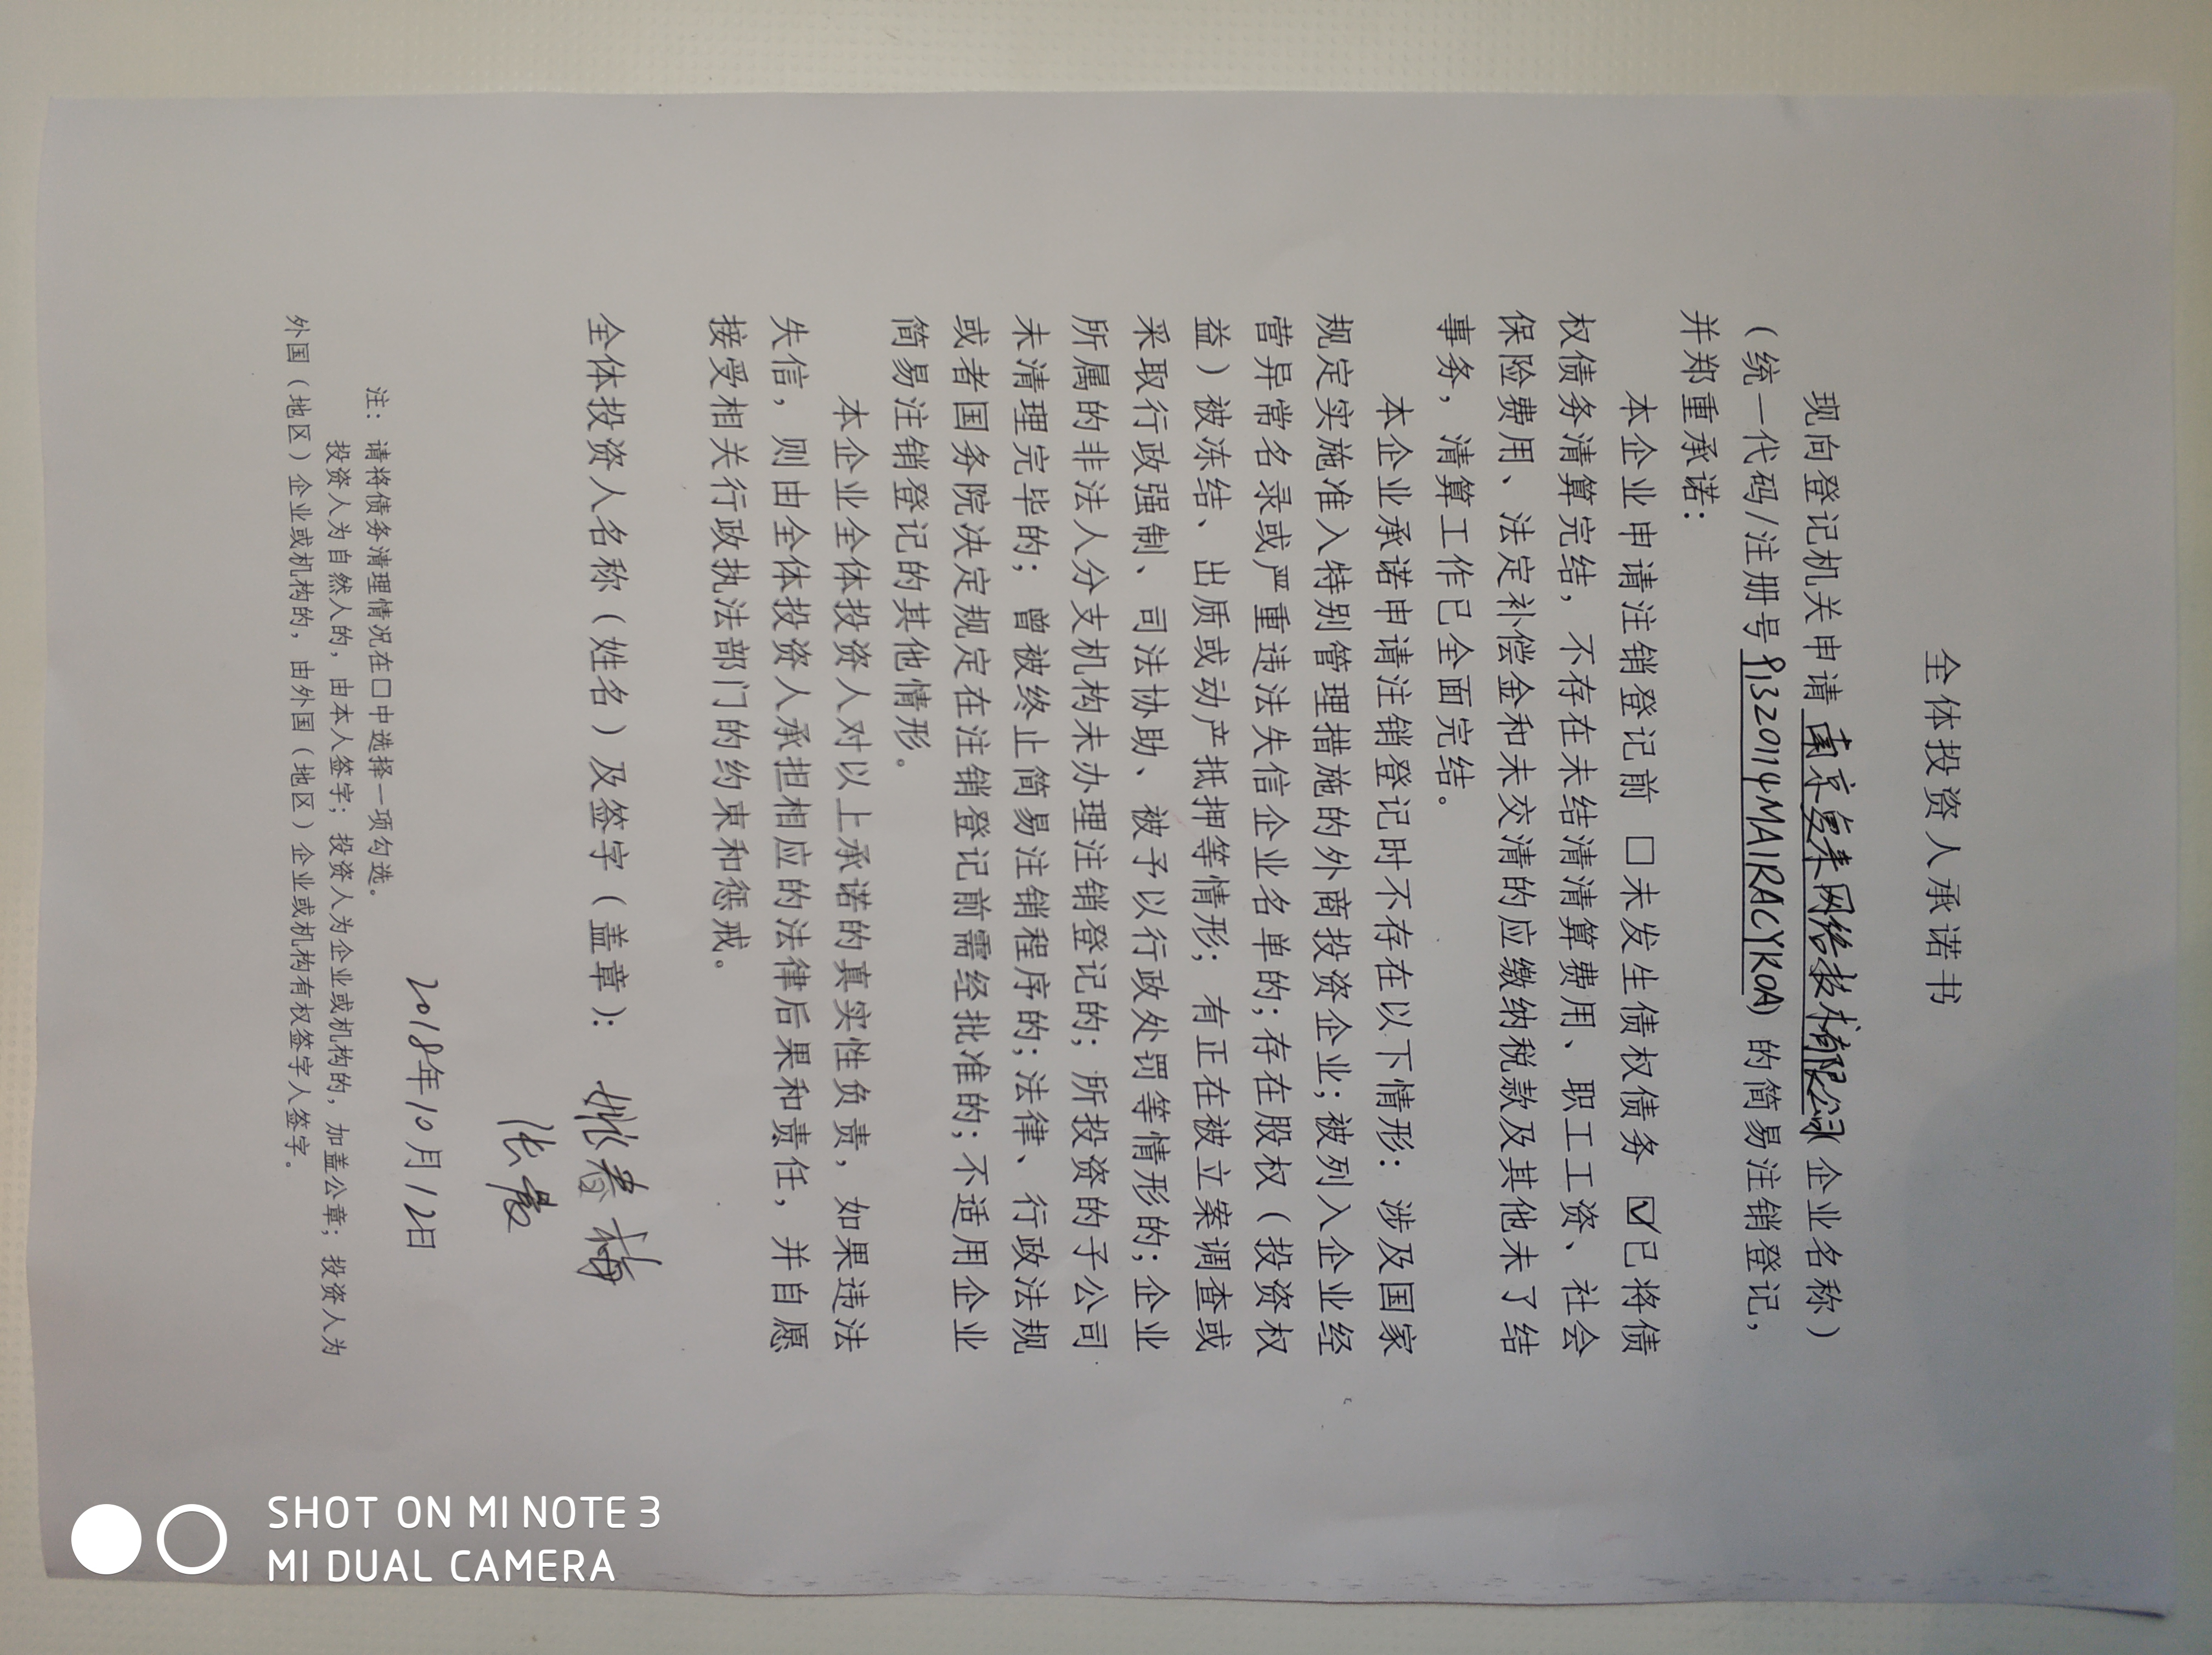 全体投资人承诺书
现向登记机关申请南京 网络技术有限公司(企业名称)
(统一代码/注册号91320114MA1RACYK0A)的简易注销登记,
并郑重承诺:
本企业申请注销登记前 □未发生债权债务 ☑已将债
权债务清算完结,不存在未结清清算费用、职工工资、社会
保险费用、法定补偿金和未交清的应缴纳税款及其他未了结
事务,清算工作已全面完结。
本企业承诺申请注销登记时不存在以下情形:涉及国家
规定实施准入特别管理措施的外商投资企业;被列入企业经
营异常名录或严重违法失信企业名单的;存在股权(投资权
益)被冻结、出质或动产抵押等情形;有正在被立案调查或
采取行政强制、司法协助、被予以行政处罚等情形的;企业
所属的非法人分支机构未办理注销登记的;所投资的子公司
未清理完毕的;曾被终止简易注销程序的;法律、行政法规
或者国务院决定规定在注销登记前需经批准的;不适用企业
简易注销登记的其他情形。
本企业全体投资人对以上承诺的真实性负责,如果违法
失信,则由全体投资人承担相应的法律后果和责任,并自愿
接受相关行政执法部门的约束和惩戒。
全体投资人名称(姓名)及签字(盖章): 姚春梅
张
2018年10月12日
注:请将债务清理情况在□中选择一项勾选。
投资人为自然人的,由本人签字;投资人为企业或机构的,加盖公章;投资人为
外国(地区)企业或机构的,由外国(地区)企业或机构有权签字人签字。
SHOT ON MI NOTE 3
MI DUAL CAMERA